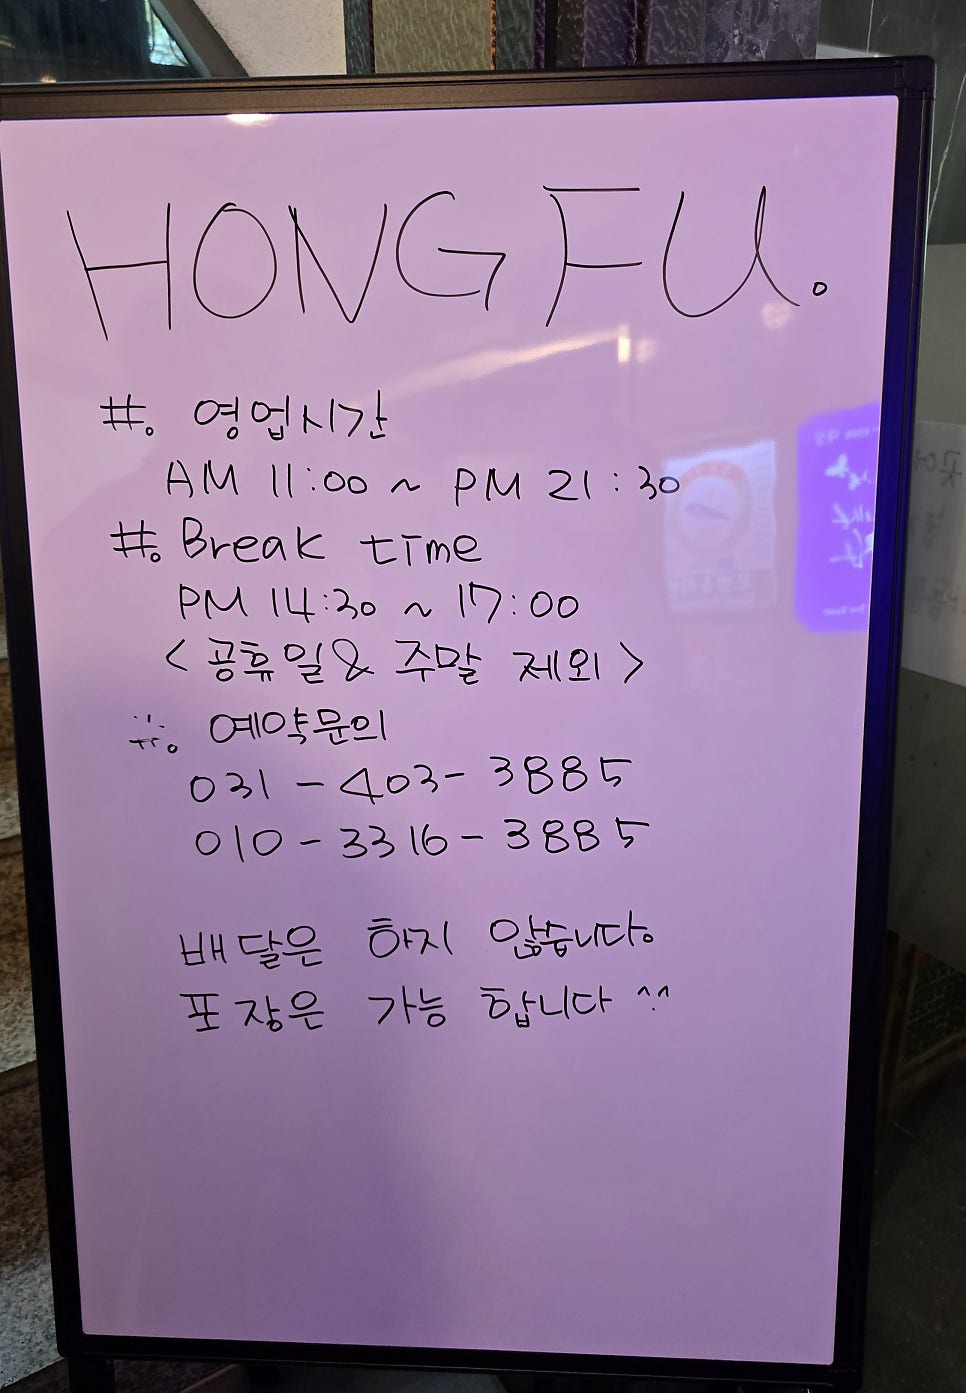 HONG FU.
#. 영업시간
AM 11:00 ~ PM 21:30
#. Break time
PM 14:30 ~ 17:00
<공휴일 & 주말 제외>
#. 예약문의
031 - 403 - 3885
010 - 3316 - 3885
배달은 하지 않습니다.
포장은 가능 합니다 ^^